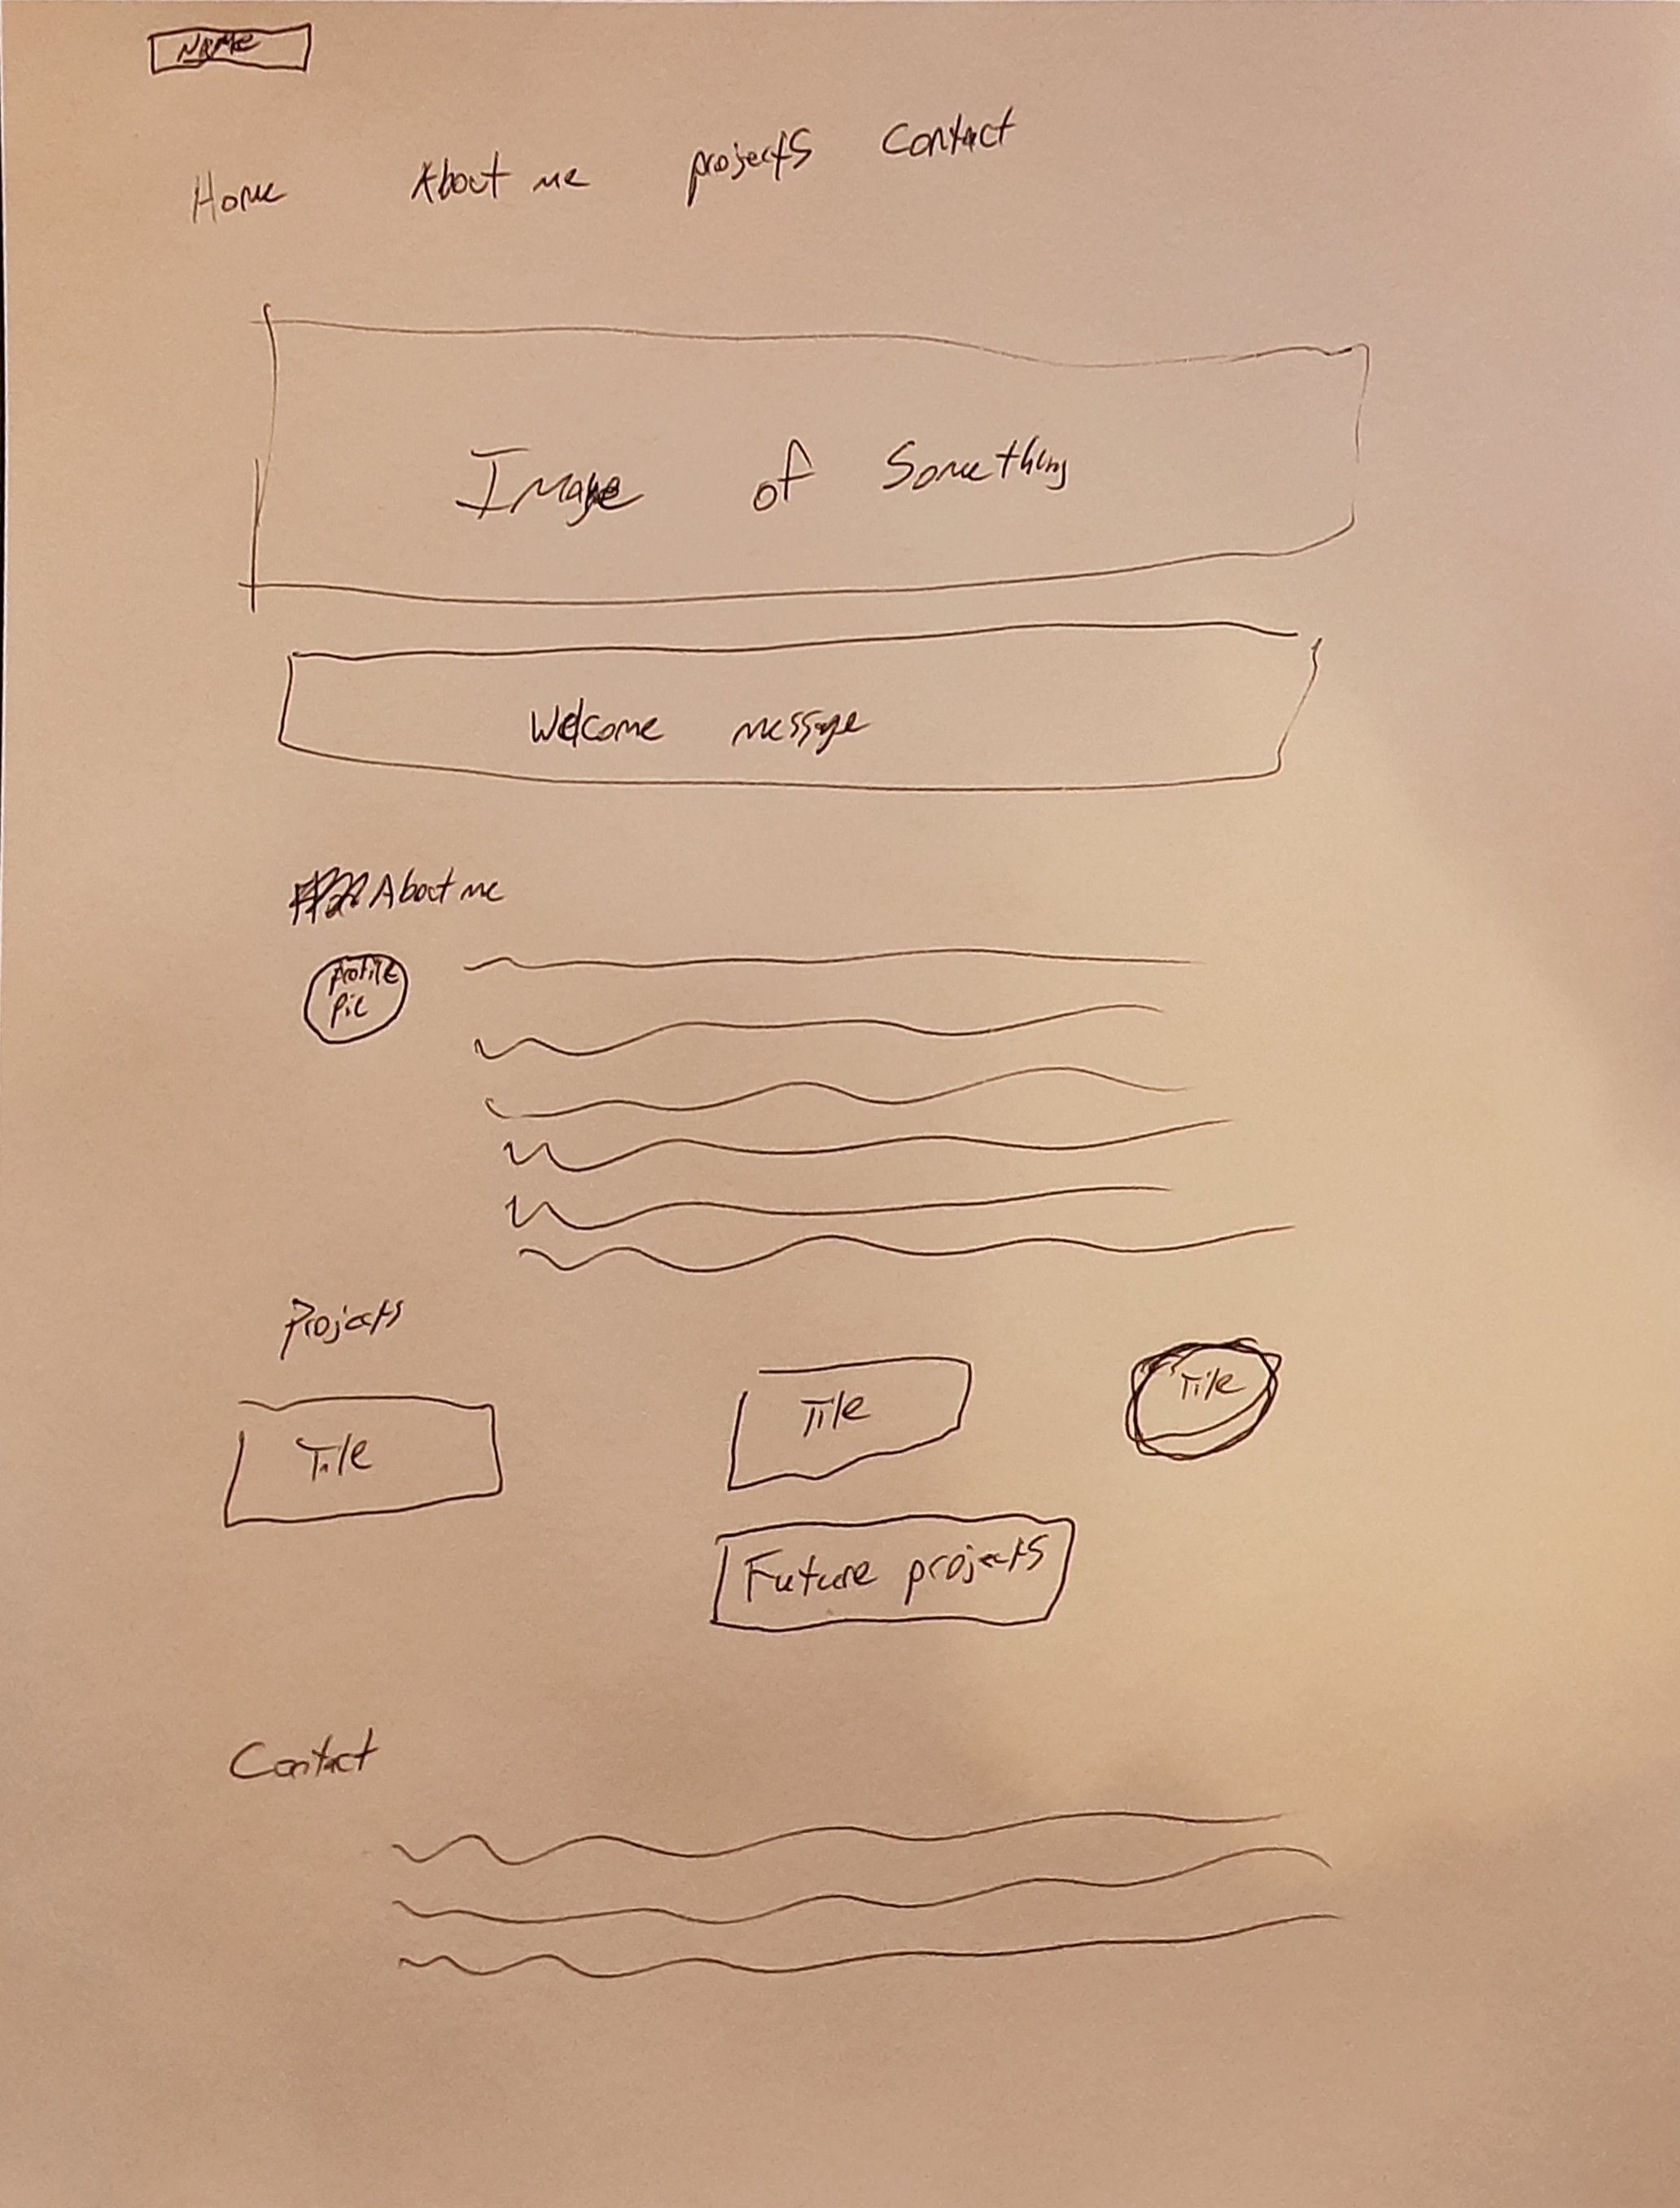 NAME
Home About me projects Contact
Image of Something
Welcome message
About me
Profile
Pic
Projects
Tile Tile Tile
Future projects
Contact